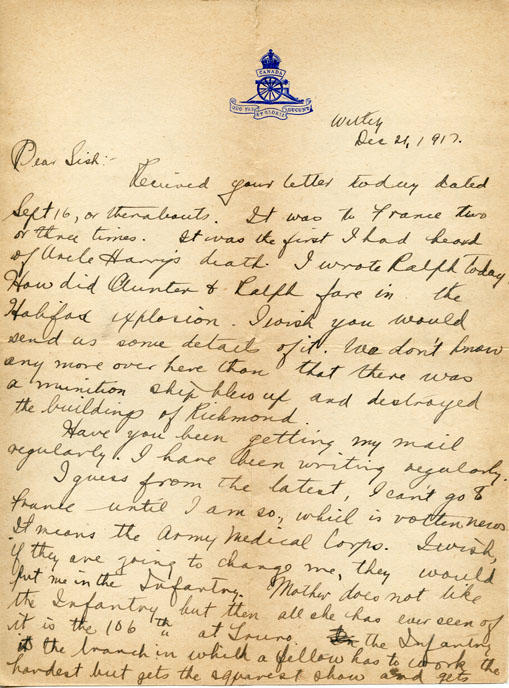 CANADA
QUO FAS ET GLORIA DUCUNT
Witley
Dec 21, 1917.
Dear Sish:-
Recieved your letter today dated
Sept 16, or therabouts. It was to France two
or three times. It was the first I had heard
of Uncle Harry's death. I wrote Ralph Today.
How did Aunter & Ralph fare in the
Halifax explosion. I wish you would
send us some details of it. We don't know
any more over here than that there was
a munition ship blew up and destroyed
the buildings of Richmond
Have you been getting my mail
regularly. I have been writing regularly.
I guess from the latest, I cant go to
France until I am 20, which is rotten news
It means the Army Medical Corps. I wish,
if they are going to change me, they would
put me in the Infantry. Mother does not like
the Infantry but then all she has ever seen of
it is the 106 th " at Truro. the Infantry
is the branch in which a fellow has to work the
hardest but gets the squarest show and gets